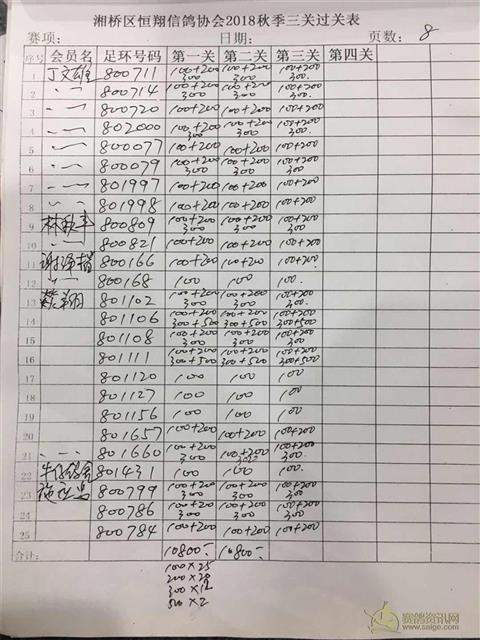 湘桥区恒翔信鸽协会2018秋季三关过关表
赛项: 日期: 页数: 8
序号 会员名 足环号码 第一关 第二关 第三关 第四关
1 丁文雄 800711 100+200 300 100+200 300 100+200 300
2 〃 800714 100+200 300 100+200 300 100+200 300
3 〃 800720 100+200 100+200 100+200
4 〃 802000 100+200 300 100+200 300 100+200 300
5 〃 800077 100+200 100+200 100+200
6 〃 800079 100+200 300 100+200 300 100+200 300
7 〃 801997 100+200 100+200 100+200
8 〃 801998 100+200 100+200 100+200
9 800809 100+200 300 100+200 300 100+200 300
10 〃 800821 100+200 100+200 100+200
11 800166 100+200 100+200 100+200
12 〃 800168 100 100 100
13 801102 100+200 300 100+200 300 100+200 300
14 801106 100+200 300+500 100+200 300+500 100+200 300+500
15 801108 100+200 300 100+200 300 100+200 300
16 801111 100+200 300+500 100+200 300+500 100+200 300+500
17 801120 100 100 100
18 801127 100 100 100
19 801156 100 100 100
20 801657 100+200 100+200 100+200
21 〃 801660 100+200 300 100+200 300 100+200 300
22 801431 100 100 100
23 800799 100+200 300 100+200 300 100+200 300
24 800786 100+200 300 100+200 300 100+200 300
25 800784 100+200 100+200 100+200
合计: 10800- 10800-
100×25
200×
300×12
500×2
赛鸽资讯网
www.saige.com